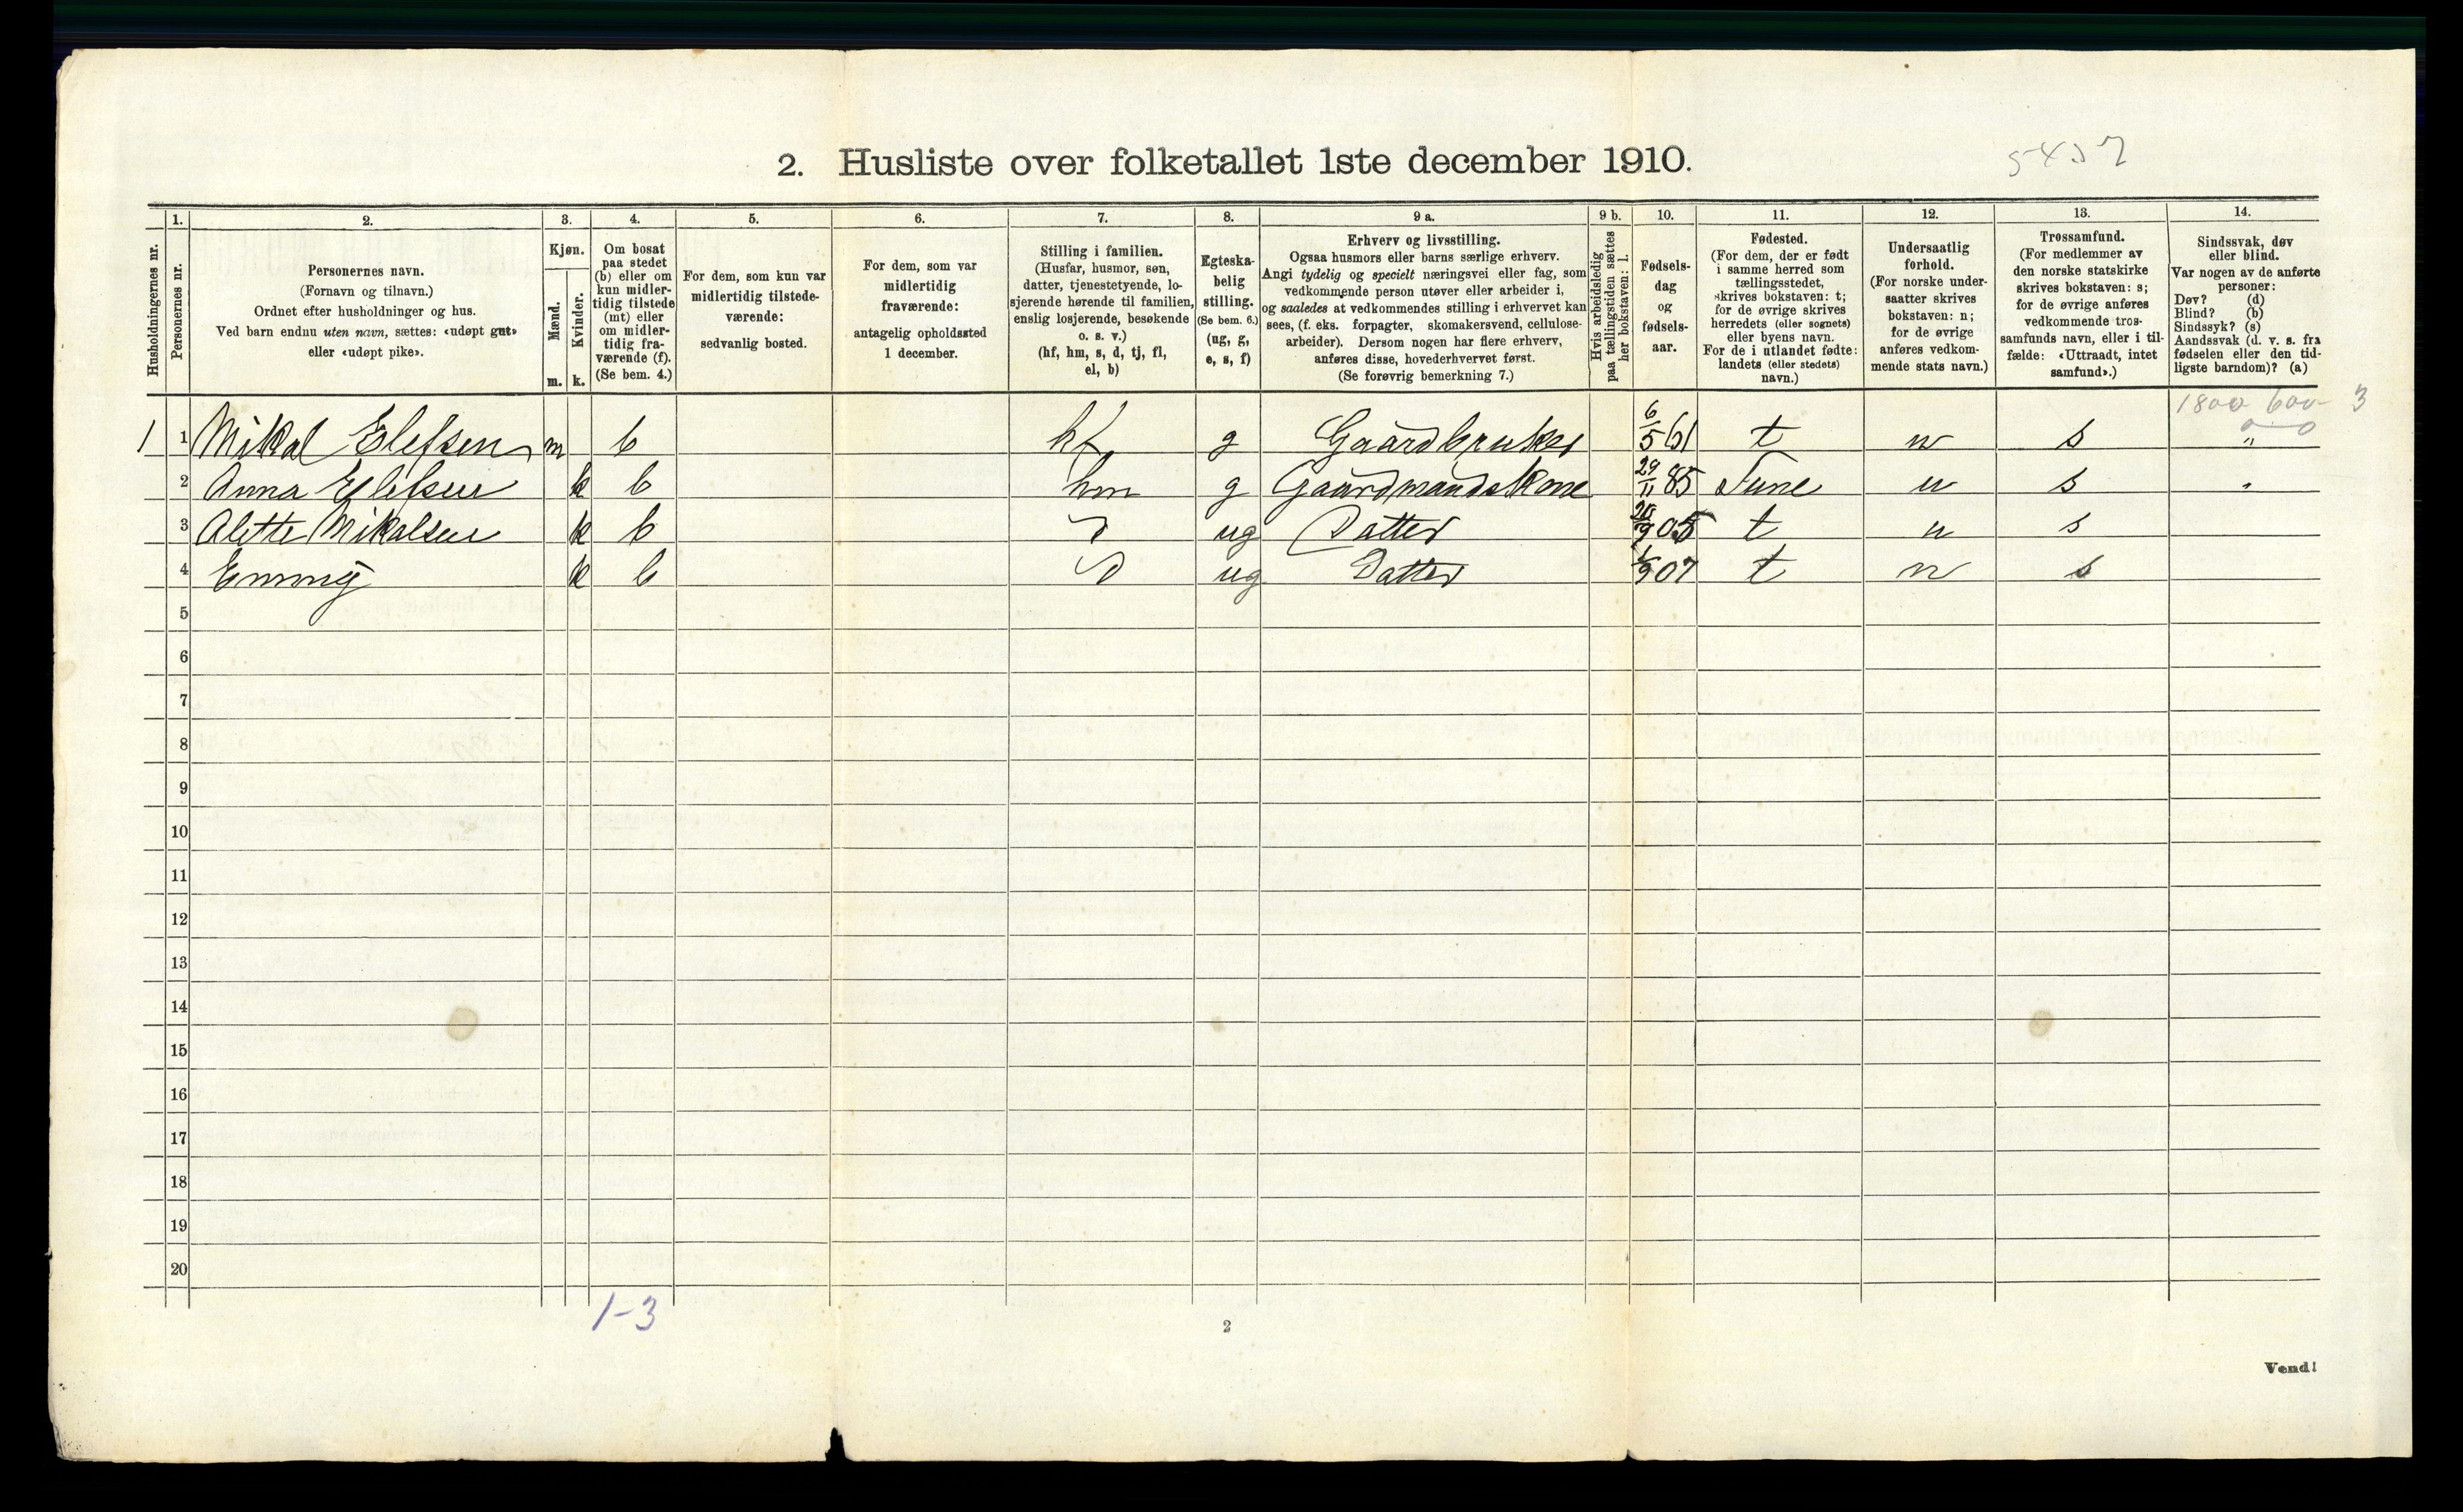 2. Husliste over folketallet 1ste december 1910.
Husholdningernes nr.
1.
Personernes nr.
2.
Personernes navn.
(Fornavn og tilnavn.)
Ordnet efter husholdninger og hus.
Ved barn endnu uten navn, sættes: «udøpt gut»
eller «udøpt pike».
3.
Kjøn.
Mænd.
Kvinder.
m. k.
4.
Om bosat
paa stedet
(b) eller om
kun midler-
tidig tilstede
(mt) eller
om midler-
tidig fra-
værende (f).
(Se bem. 4.)
5.
For dem, som kun var
midlertidig tilstede-
værende:
sedvanlig bosted.
6.
For dem, som var
midlertidig
fraværende:
antagelig opholdssted
1 december.
7.
Stilling i familien.
(Husfar, husmor, søn,
datter, tjenestetyende, lo-
sjerende hørende til familien,
enslig losjerende, besøkende
o. s. v.)
(hf, hm, s, d, tj, fl,
el, b)
8.
Egteska-
belig
stilling.
(Se bem. 6.)
(ug, g,
e, s, f)
9 a.
Erhverv og livsstilling.
Ogsaa husmors eller barns særlige erhverv.
Angi tydelig og specielt næringsvei eller fag, som
vedkommende person utøver eller arbeider i,
og saaledes at vedkommendes stilling i erhvervet kan
sees, (f. eks. forpagter, skomakersvend, cellulose-
arbeider). Dersom nogen har flere erhverv,
anføres disse, hovederhvervet først.
(Se forøvrig bemerkning 7.)
9 b.
Hvis arbeidsledig
paa tællingstiden sættes
her bokstaven: l.
10.
Fødsels-
dag
og
fødsels-
aar.
11.
Fødested.
(For dem, der er født
i samme herred som
tællingsstedet,
skrives bokstaven: t;
for de øvrige skrives
herredets (eller sognets)
eller byens navn.
For de i utlandet fødte:
landets (eller stedets)
navn.)
12.
Undersaatlig
forhold.
(For norske under-
saatter skrives
bokstaven: n;
for de øvrige
anføres vedkom-
mende stats navn.)
13.
Trossamfund.
(For medlemmer av
den norske statskirke
skrives bokstaven: s;
for de øvrige anføres
vedkommende tros-
samfunds navn, eller i til-
fælde: «Uttraadt, intet
samfund».)
14.
Sindssvak, døv
eller blind.
Var nogen av de anførte
personer:
Døv? (d)
Blind? (b)
Sindssyk? (s)
Aandssvak (d. v. s. fra
fødselen eller den tid-
ligste barndom)? (a)
1800 600- 3
0 0
1 1 Mikal Elefsen m b hf g Gaardbruker 6/5 61 t n s "
2 Anna Elefsen k b hm g Gaardmandskone 29/11 85 Tune n s "
3 Alette Mikalsen k b d ug Datter t n s
4 Emmy k b d ug Datter 1/9 07 t n s
5
6
7
8
9
10
11
12
13
14
15
16
17
18
19
20
1-3
2
Vend!